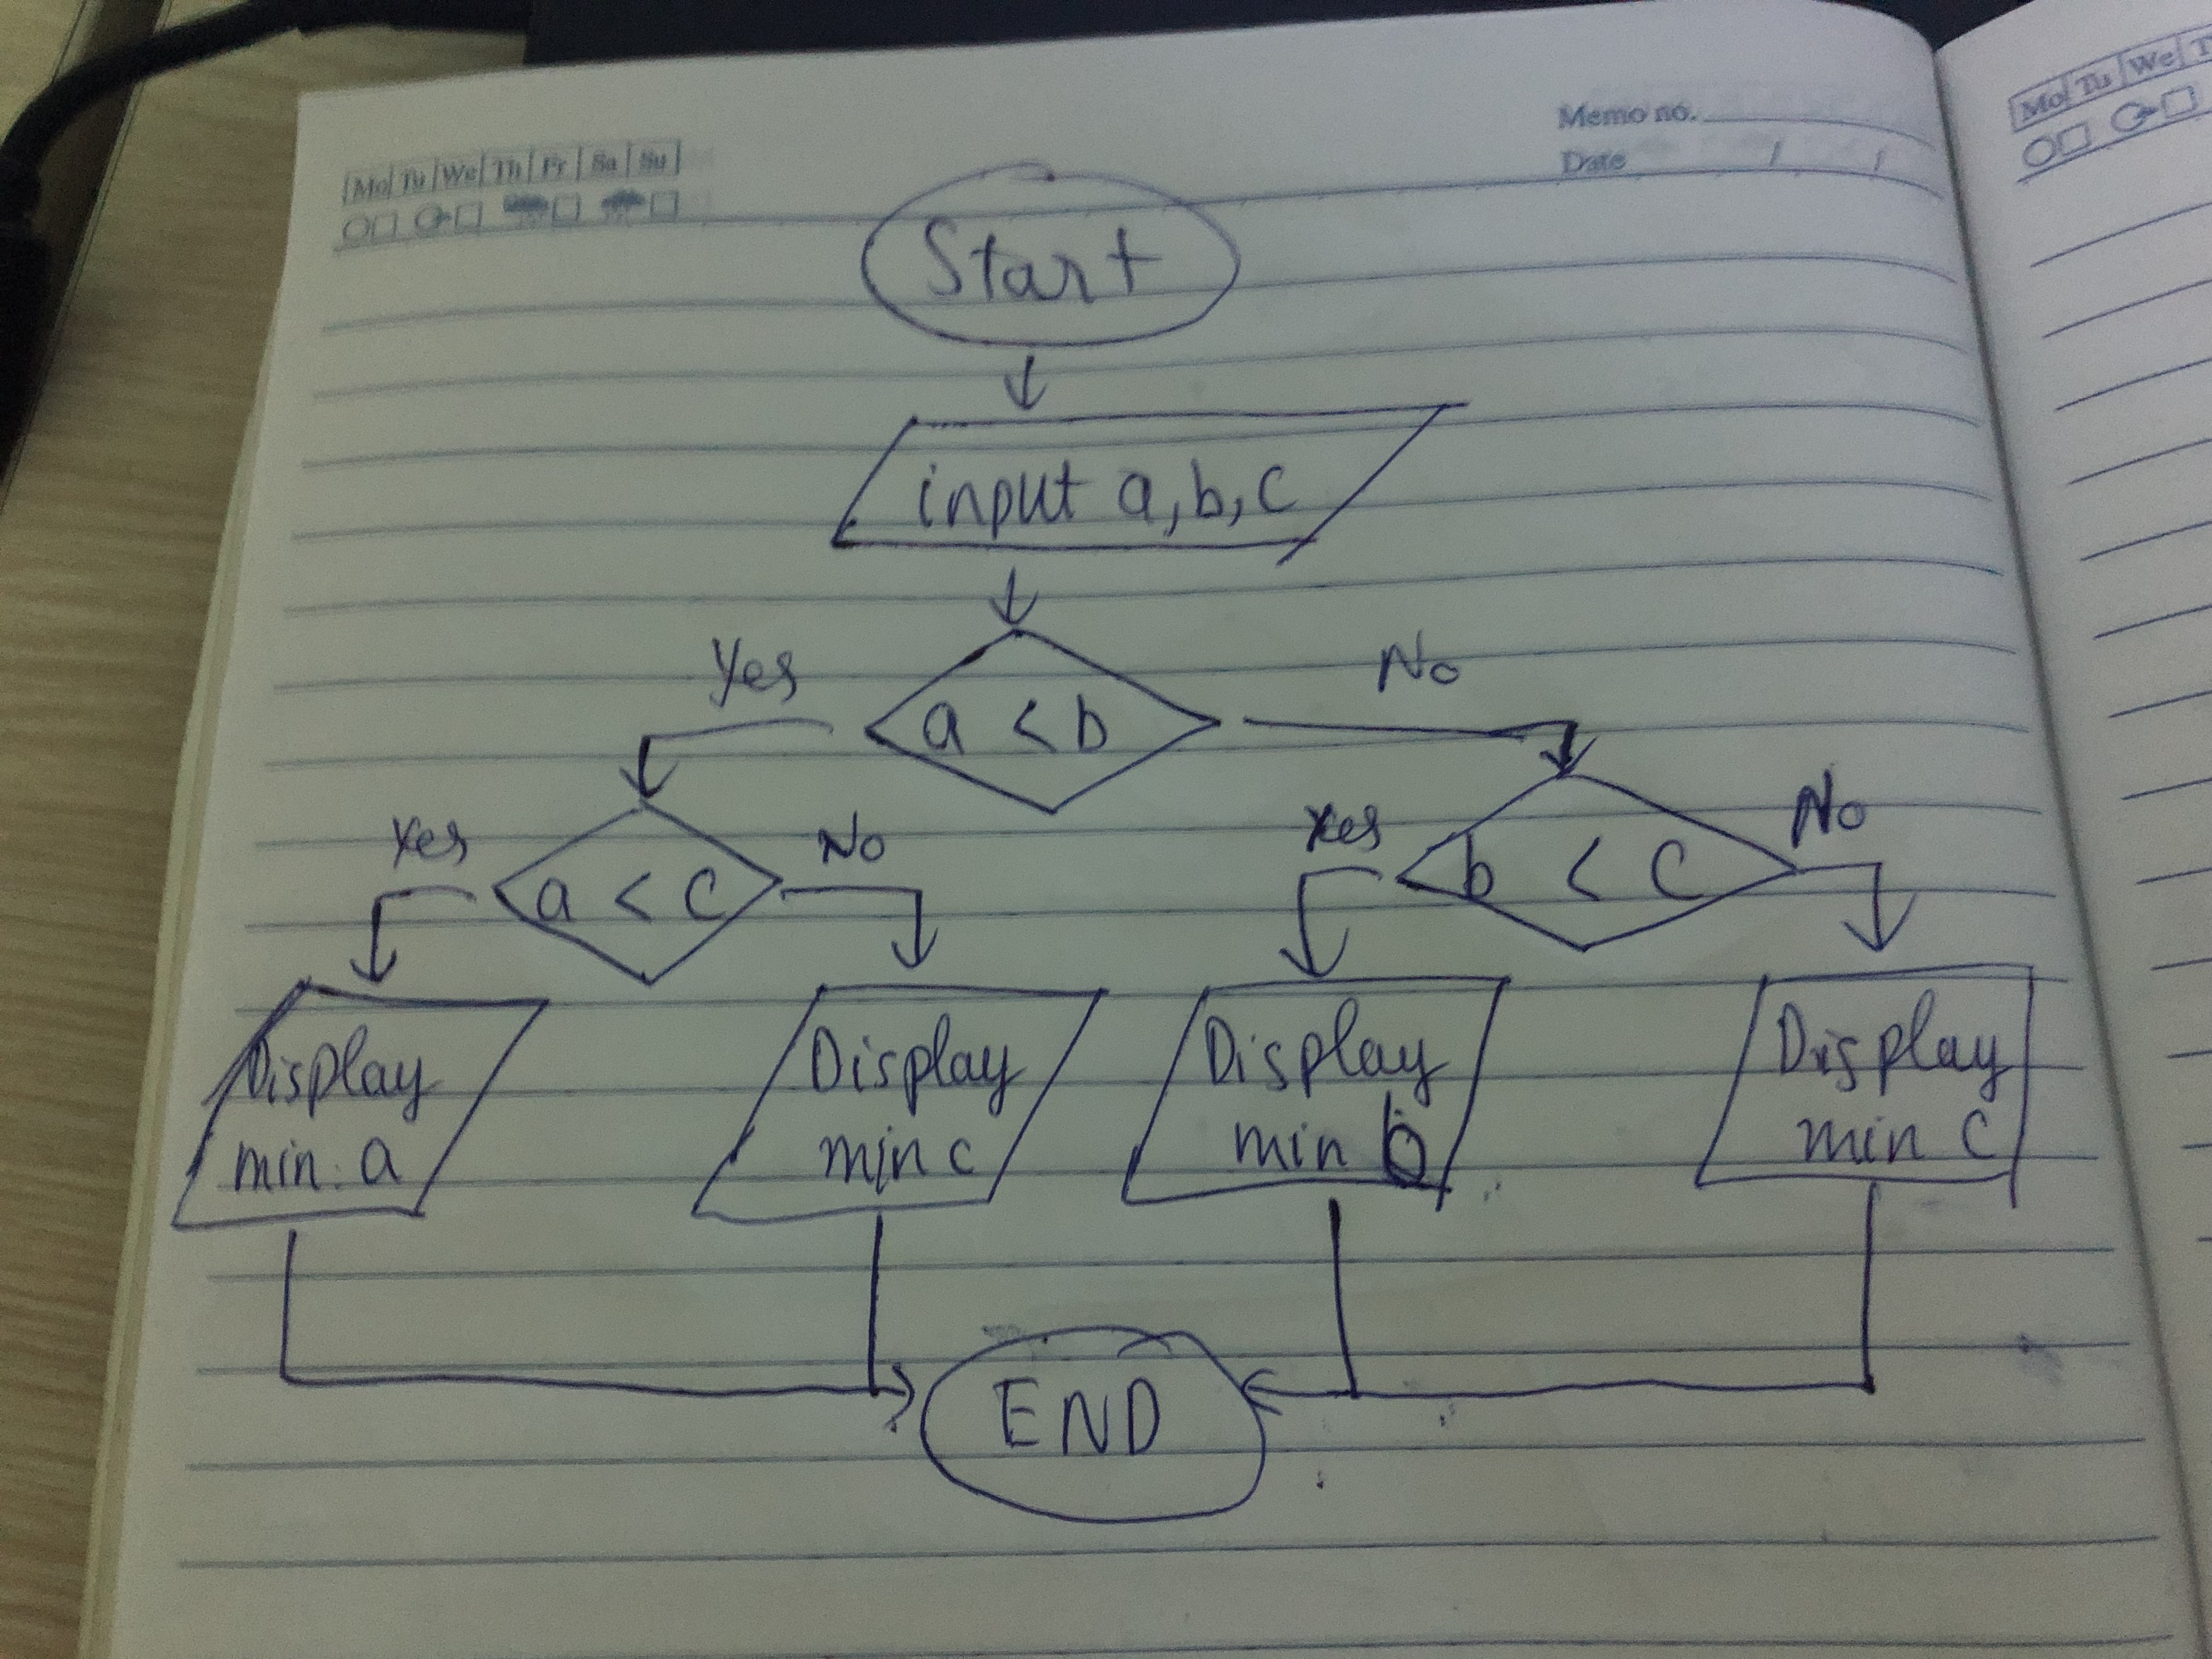 Mo Tu We Th Fr Sa Su
Memo no.
Date
Start
input a, b, c
a < b
Yes
No
a < c
Yes
No
b < c
Yes
No
Display
min a
Display
min c
Display
min b
Display
min c
END
Mo Tu We T